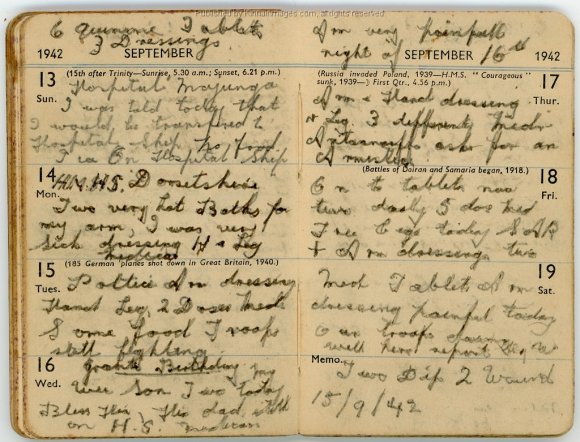 6 quinine Tablets
3 Dressings
1942 SEPTEMBER
13 (15th after Trinity—Sunrise, 5.30 a.m.; Sunset, 6.21 p.m.)
Sun. Hospital Majunga
I was told today that
I would be transfered to
Hospital Ship
Tea On Hospital Ship
14 H.M.H.S. Dorsetshire
Mon. Two very hot Baths for
my arm, I was very
sick dressing H & Leg
15 (185 German planes shot down in Great Britain, 1940.)
Tues. Poltice Arm dressing
Hand Leg 2 Doses
Some food Troops
still fighting
16 Birthday my
Wed. Wee Son Two today
Bless Him, His Dad
on H.S.
Published by hunimages.com
Arm very painfull
night of 16th
SEPTEMBER 1942
(Russia invaded Poland, 1939—H.M.S. "Courageous" 17
sunk, 1939—☽ First Qtr., 4.56 p.m.) Thur.
Arm & Hand dressing
& Leg. 3 different
ask for an
Armistice
(Battles of Doiran and Samaria began, 1918.) 18
Fri.
On to tablets now
two daily 5 dos
today
+ Arm dressings two
19
Sat.
Med Tablets Arm
dressing painful today
Our troops doing
well here report
Memo. Two Dif 2 Wound
15/9/42